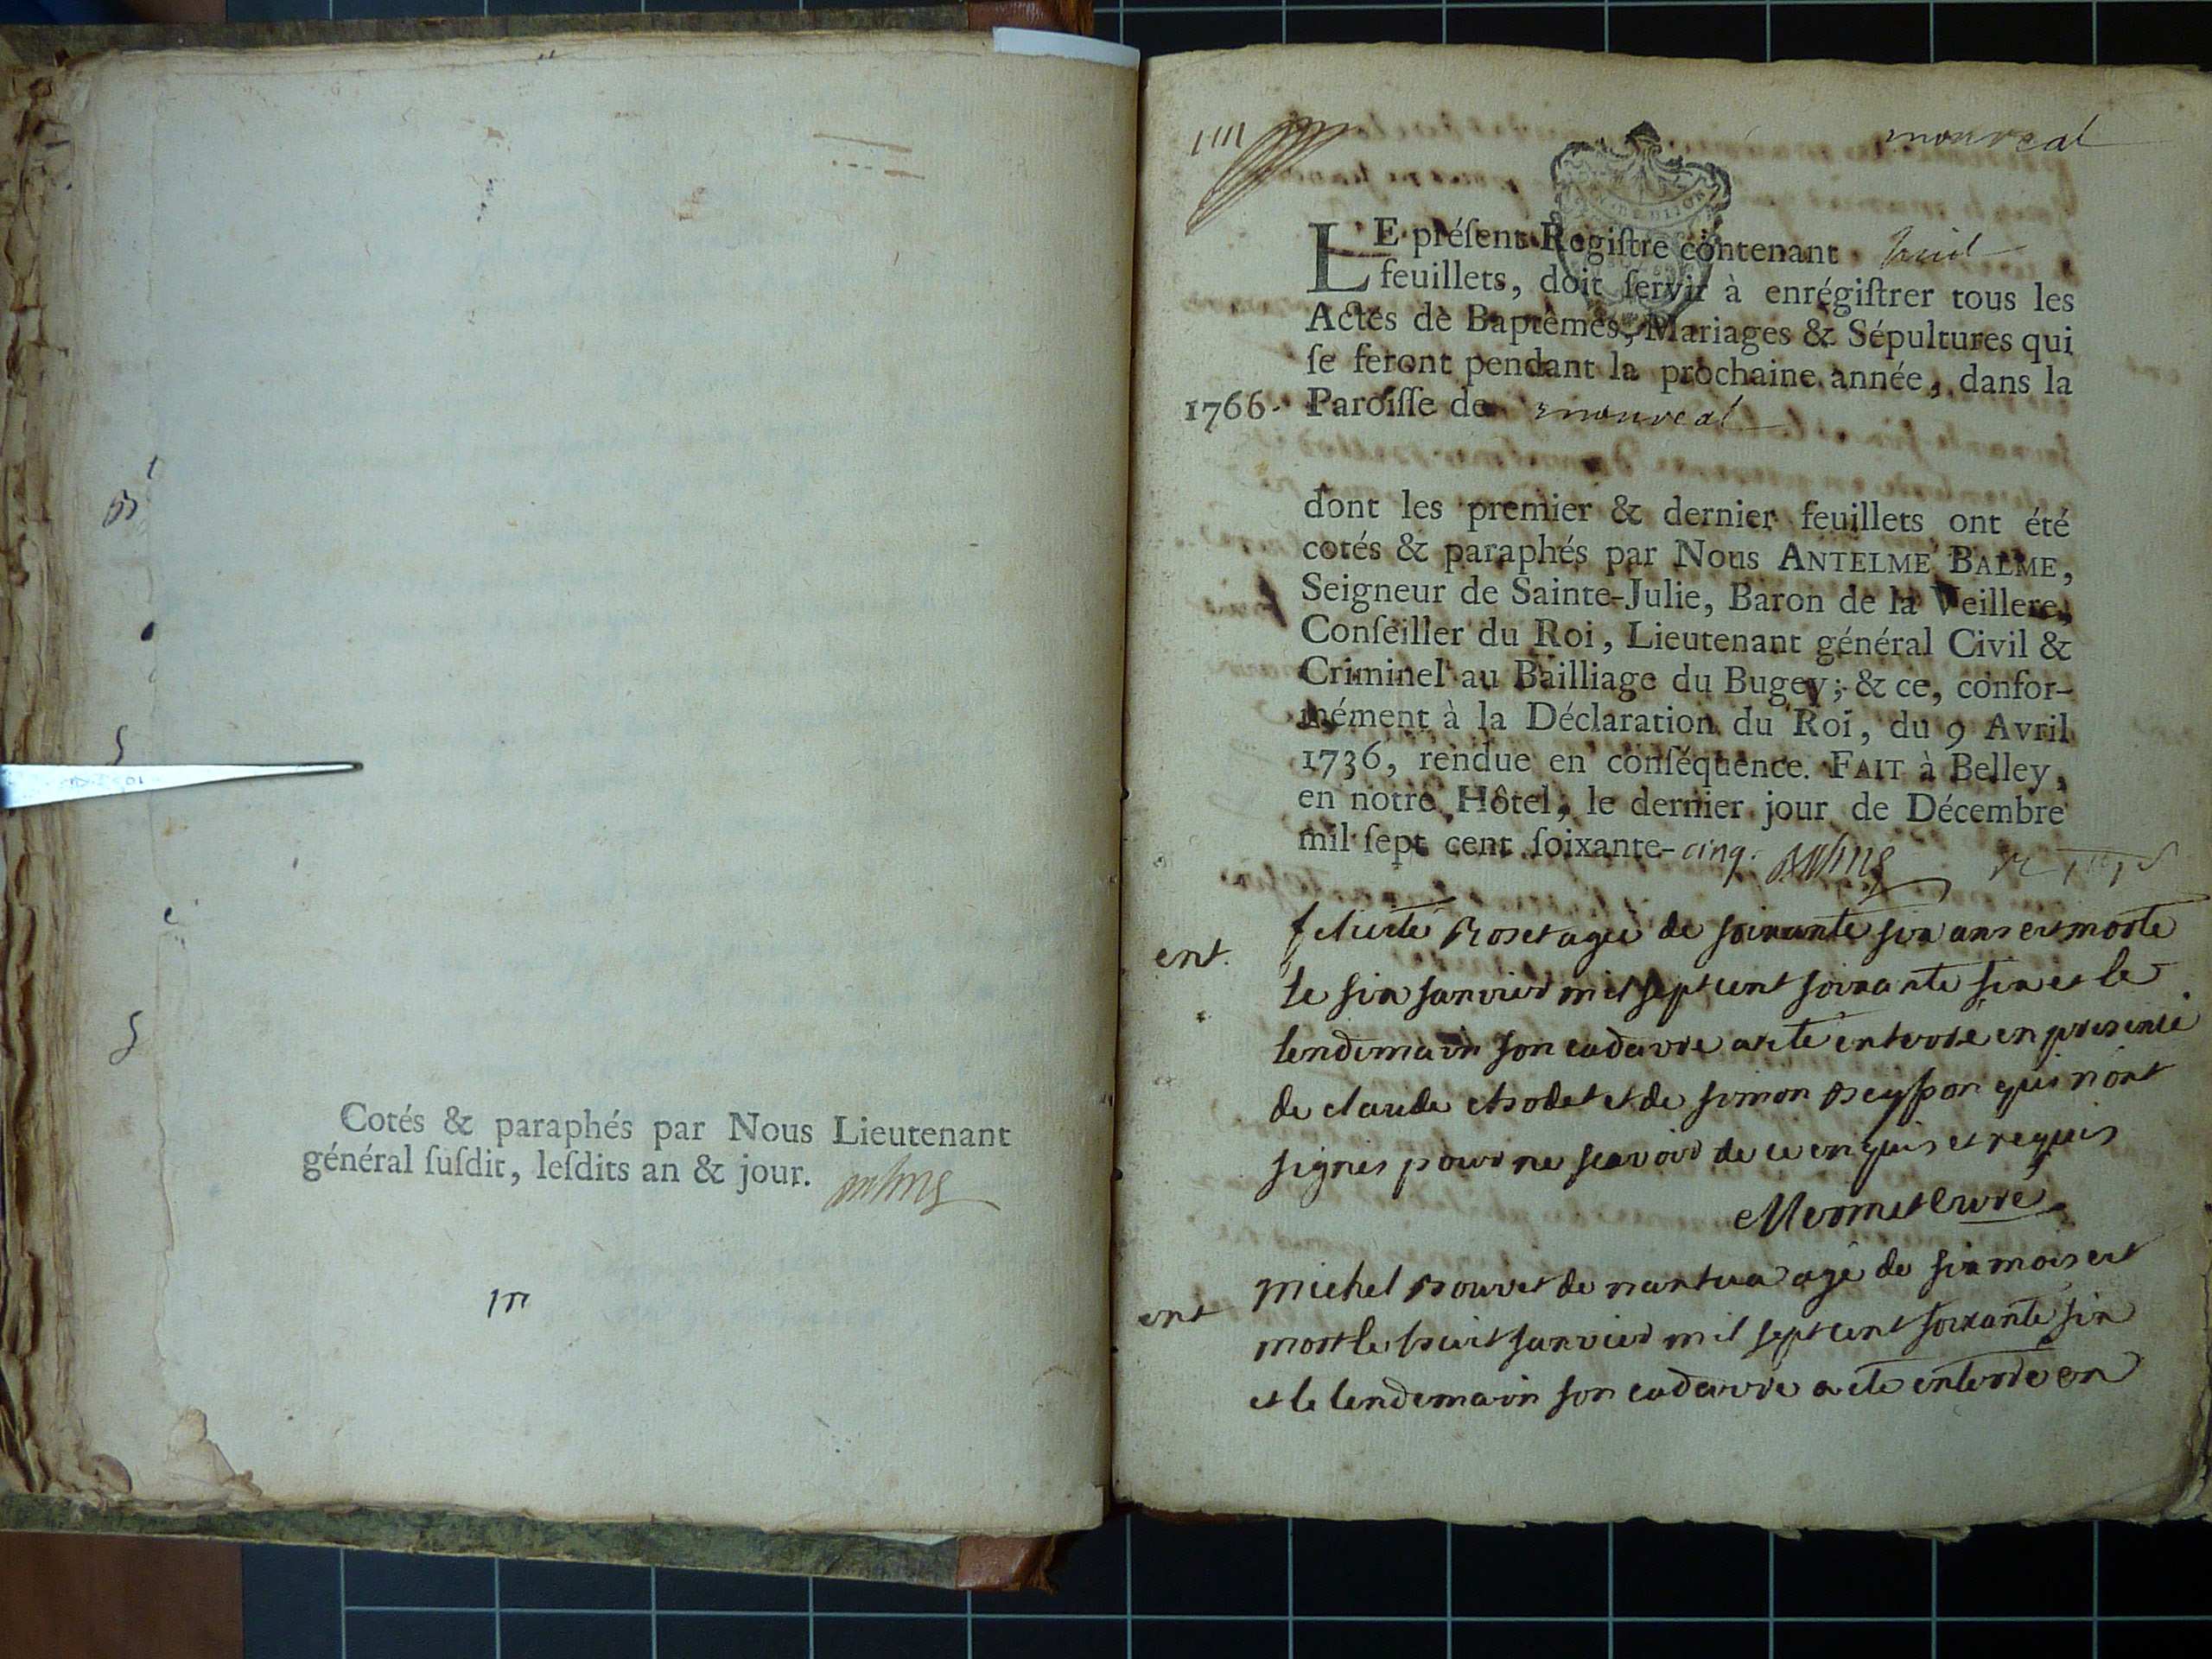 Cotés & paraphés par Nous Lieutenant
général ſuſdit, leſdits an & jour.
monreal
LE préſent Regiſtre contenant huit
feuillets, doit ſervir à enrégiſtrer tous les
Actes de Baptêmes, Mariages & Sépultures qui
ſe feront pendant la prochaine année, dans la
1766. Paroiſſe de monreal
dont les premier & dernier feuillets ont été
cotés & paraphés par Nous ANTELME BALME,
Seigneur de Sainte-Julie, Baron de la Veillere,
Conſeiller du Roi, Lieutenant général Civil &
Criminel au Bailliage du Bugey; & ce, confor-
mément à la Déclaration du Roi, du 9 Avril
1736, rendue en conſéquence. FAIT à Belley,
en notre Hôtel, le dernier jour de Décembre
mil ſept cent ſoixante-cinq.
ent. felicité Roset agée de soixante six ans est morte
le six janvier mil sept cent soixante six et le
lendemain son cadavre a eté enterré en presence
de claude et de simon qui n'ont
signés pour ne scavoir de ce enquis et requis
Mermet curé
ent michel Bouvet de nantua agé de six mois est
mort le huit janvier mil sept cent soixante six
et le lendemain son cadavre a eté enterré en